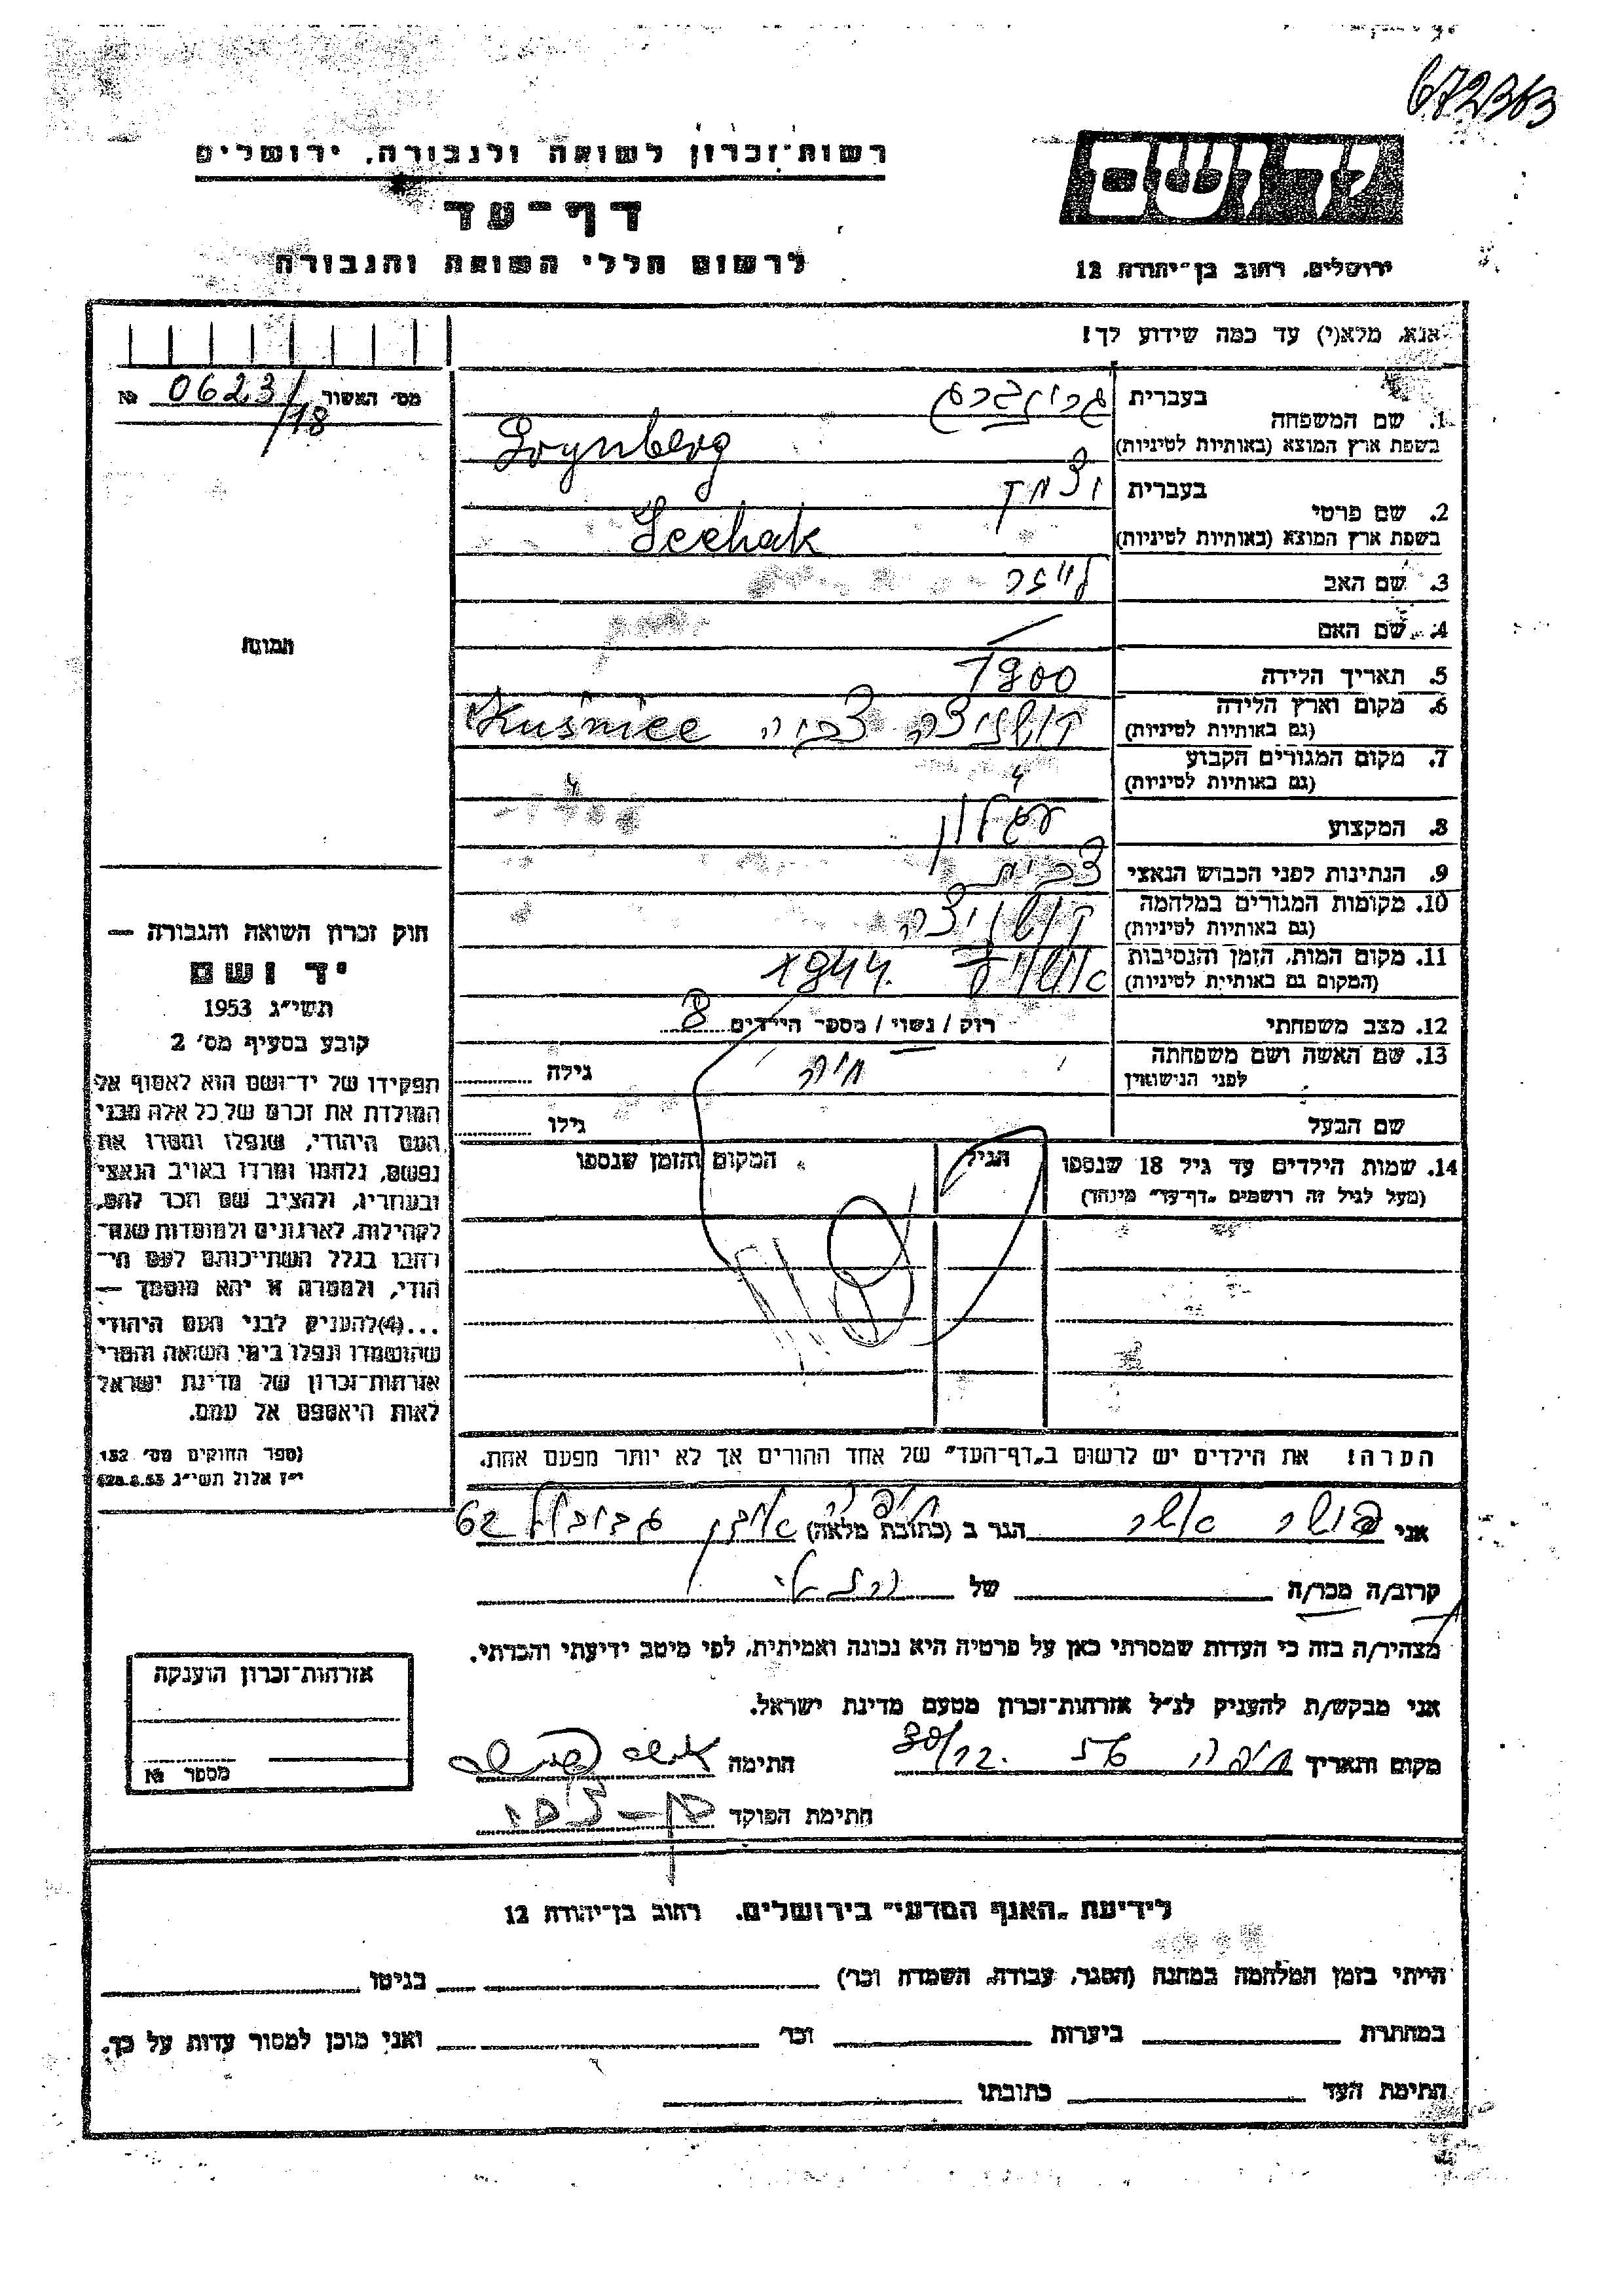 672363
רשות-זכרון לשואה ולגבורה, ירושלים
יד ושם
דף-עד
לרשום חללי השואה והגבורה
ירושלים, רחוב בן-יהודה 12
אנא, מלא(י) עד כמה שידוע לך!
מס׳ האשור 0623/18 №
1. שם המשפחה
בעברית גרינברג
בשפת ארץ המוצא (באותיות לטיניות) Grynberg
2. שם פרטי
בעברית יצחק
בשפת ארץ המוצא (באותיות לטיניות)
3. שם האב
4. שם האם —
5. תאריך הלידה 1900
6. מקום וארץ הלידה
(גם באותיות לטיניות) Kuśnice
7. מקום המגורים הקבוע
(גם באותיות לטיניות) "
8. המקצוע עגלון
9. הנתינות לפני הכבוש הנאצי
10. מקומות המגורים במלחמה
(גם באותיות לטיניות)
11. מקום המות, הזמן והנסיבות
(המקום גם באותיות לטיניות) 1944.
12. מצב משפחתי רוק / נשוי / מספר הילדים 8
13. שם האשה ושם משפחתה
לפני הנישואין חיה גילה
שם הבעל גילו
14. שמות הילדים עד גיל 18 שנספו הגיל המקום והזמן שנספו
(מעל לגיל זה רושמים „דף-עד״ מיוחד)
הערה! את הילדים יש לרשום ב„דף-העד״ של אחד ההורים אך לא יותר מפעם אחת.
תמונה
חוק זכרון השואה והגבורה —
יד ושם
תשי״ג 1953
קובע בסעיף מס׳ 2
תפקידו של יד-ושם הוא לאסוף אל
המולדת את זכרם של כל אלה מבני
העם היהודי, שנפלו ומסרו את
נפשם, נלחמו ומרדו באויב הנאצי
ובעוזריו, ולהציב שם וזכר להם,
לקהילות, לארגונים ולמוסדות שנח-
רבו בגלל השתייכותם לעם הי-
הודי, ולמטרה זו יהא מוסמך —
...(4)להעניק לבני העם היהודי
שהושמדו ונפלו בימי השואה והמרי
אזרחות-זכרון של מדינת ישראל
לאות היאספם אל עמם.
(ספר החוקים מס׳ 132
י״ז אלול תשי״ג 28.8.53)
אני אשר הגר ב (כתובת מלאה) חיפה אבן גבירול 62
קרוב/ה מכר/ה של
מצהיר/ה בזה כי העדות שמסרתי כאן על פרטיה היא נכונה ואמיתית, לפי מיטב ידיעתי והכרתי.
אני מבקש/ת להעניק לנ״ל אזרחות-זכרון מטעם מדינת ישראל.
מקום ותאריך חיפה 30/12. 56 חתימה
חתימת הפוקד
אזרחות-זכרון הוענקה
מספר №
לידיעת „האגף המדעי״ בירושלים, רחוב בן-יהודה 12
הייתי בזמן המלחמה במחנה (הסגר, עבודה, השמדה וכו׳) בגיטו
במחתרת ביערות וכו׳ ואני מוכן למסור עדות על כך.
חתימת העד כתובתו